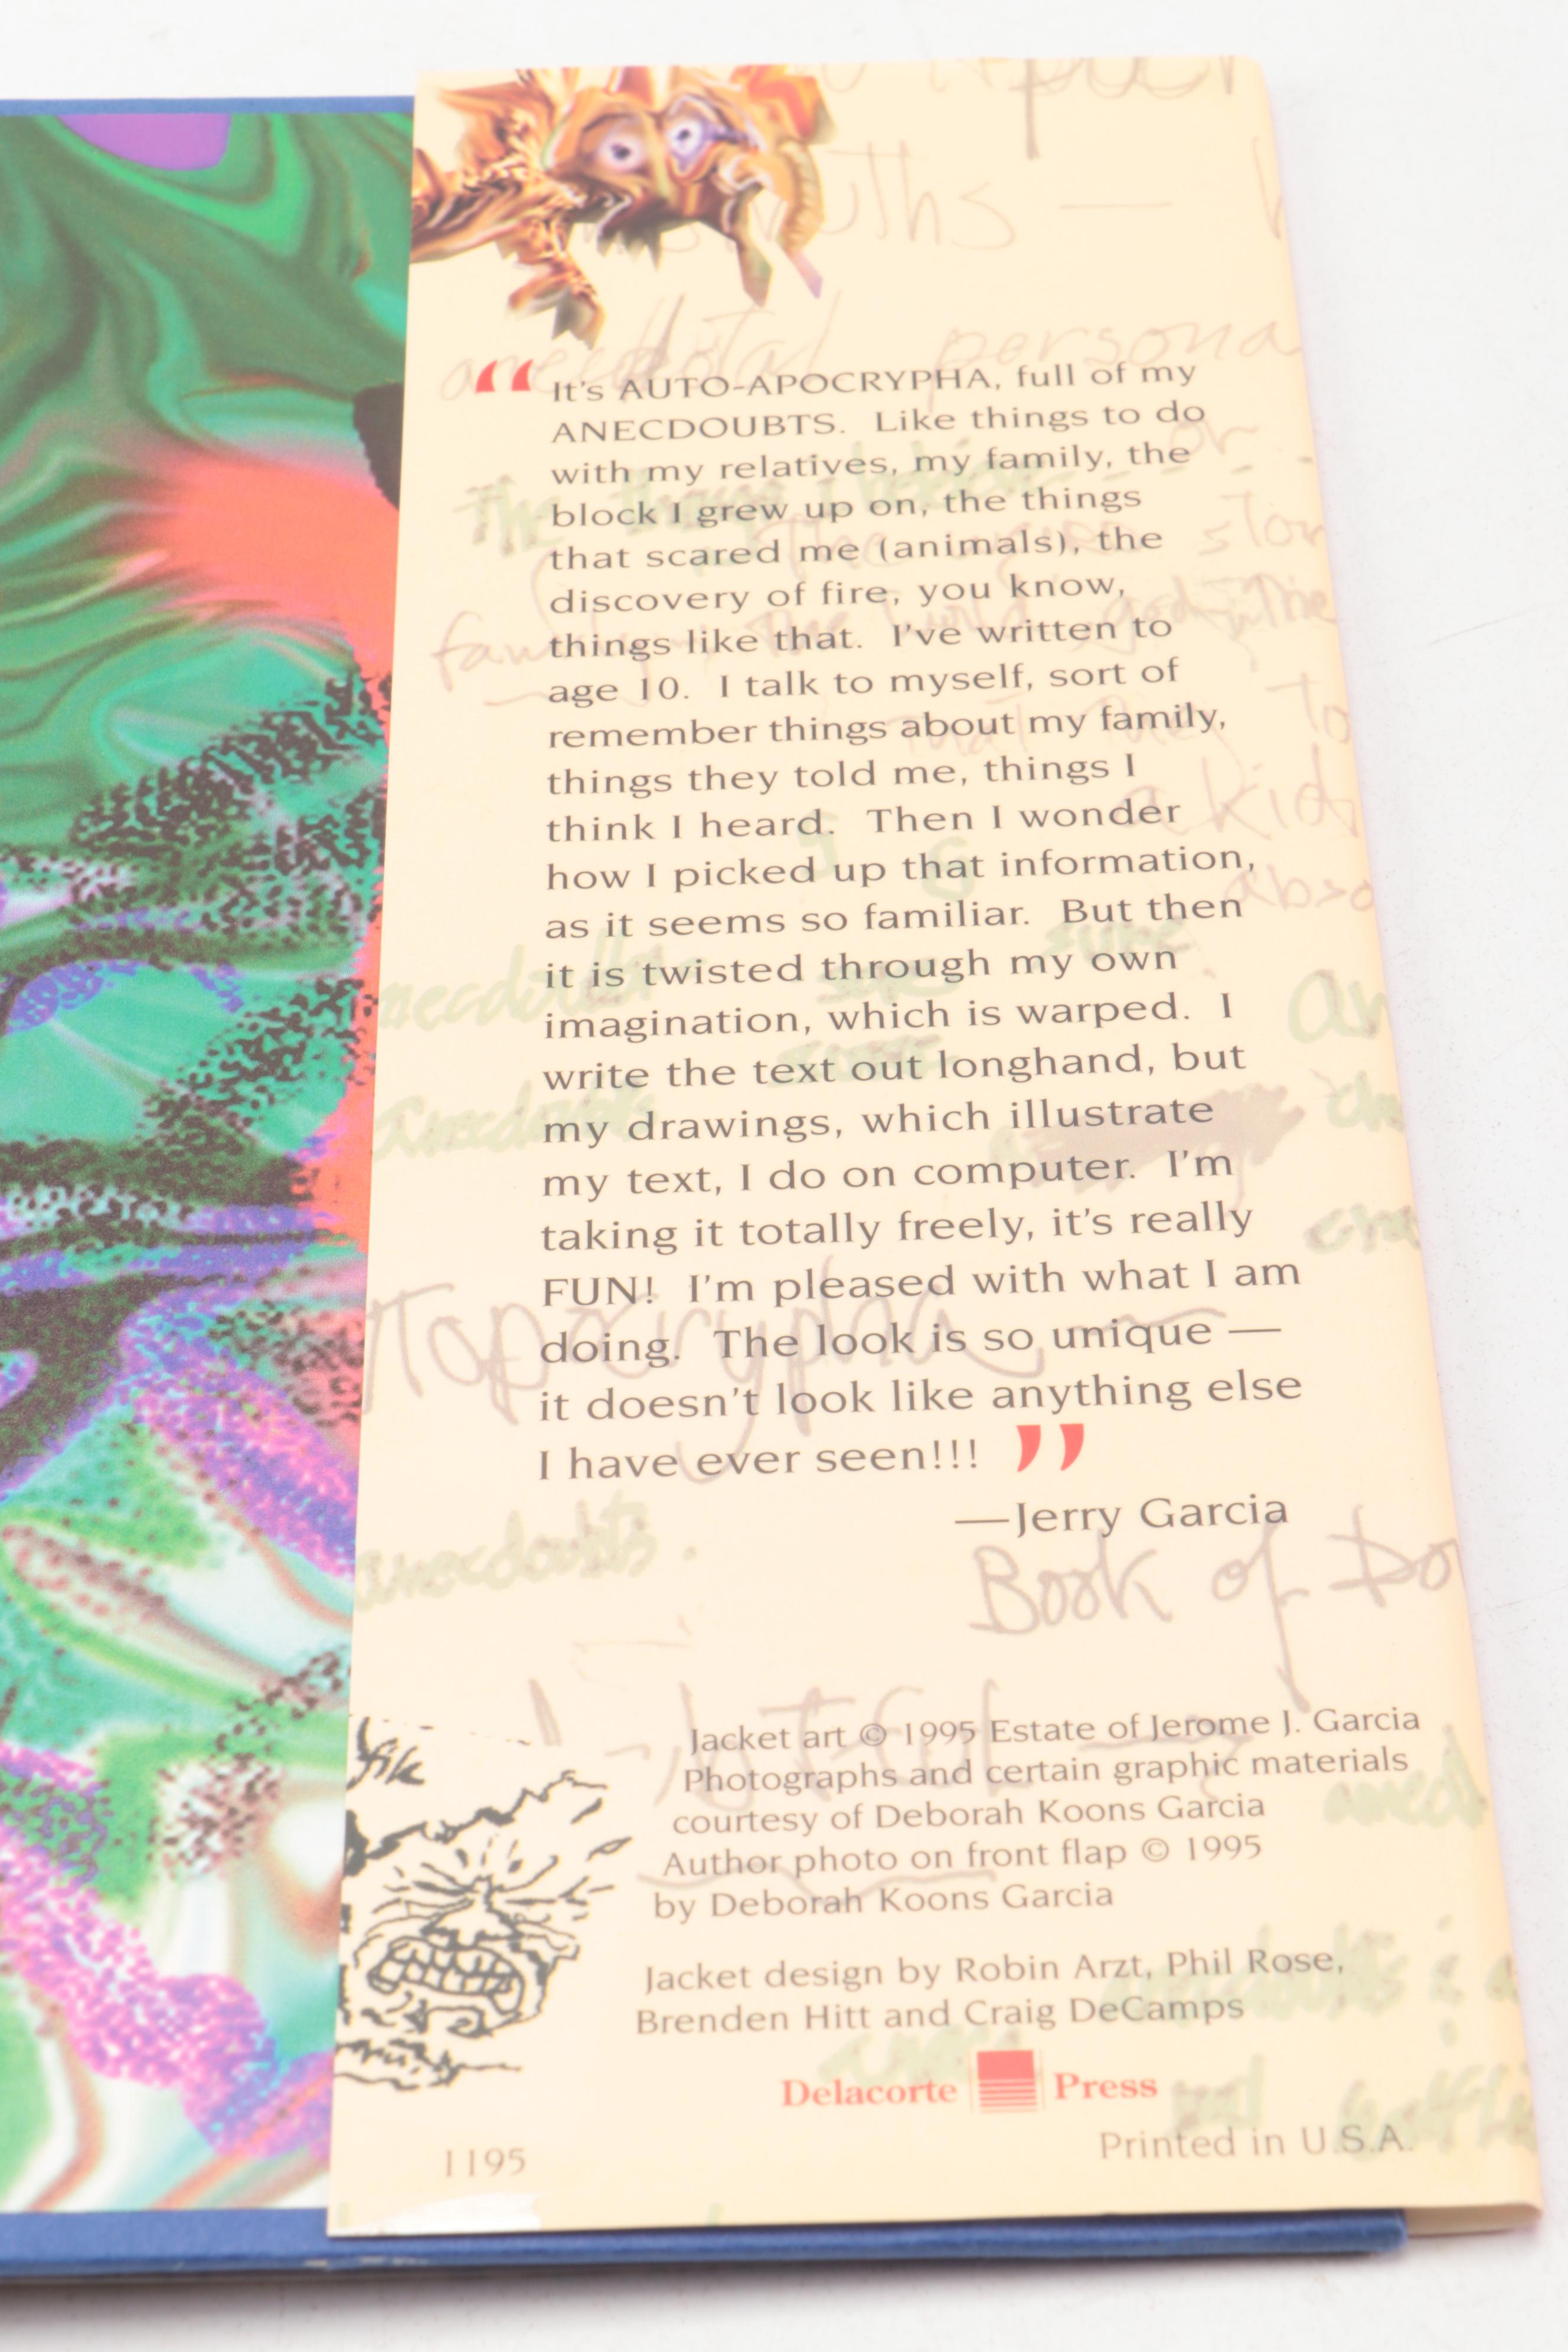 “ It's AUTO-APOCRYPHA, full of my
ANECDOUBTS. Like things to do
with my relatives, my family, the
block I grew up on, the things
that scared me (animals), the
discovery of fire, you know,
things like that. I've written to
age 10. I talk to myself, sort of
remember things about my family,
things they told me, things I
think I heard. Then I wonder
how I picked up that information,
as it seems so familiar. But then
it is twisted through my own
imagination, which is warped. I
write the text out longhand, but
my drawings, which illustrate
my text, I do on computer. I'm
taking it totally freely, it's really
FUN! I'm pleased with what I am
doing. The look is so unique —
it doesn't look like anything else
I have ever seen!!! ”
—Jerry Garcia
anecdoubts.
Book of Do
Jacket art © 1995 Estate of Jerome J. Garcia
Photographs and certain graphic materials
courtesy of Deborah Koons Garcia
Author photo on front flap © 1995
by Deborah Koons Garcia
Jacket design by Robin Arzt, Phil Rose,
Brenden Hitt and Craig DeCamps
Delacorte Press
Printed in U.S.A.
1195